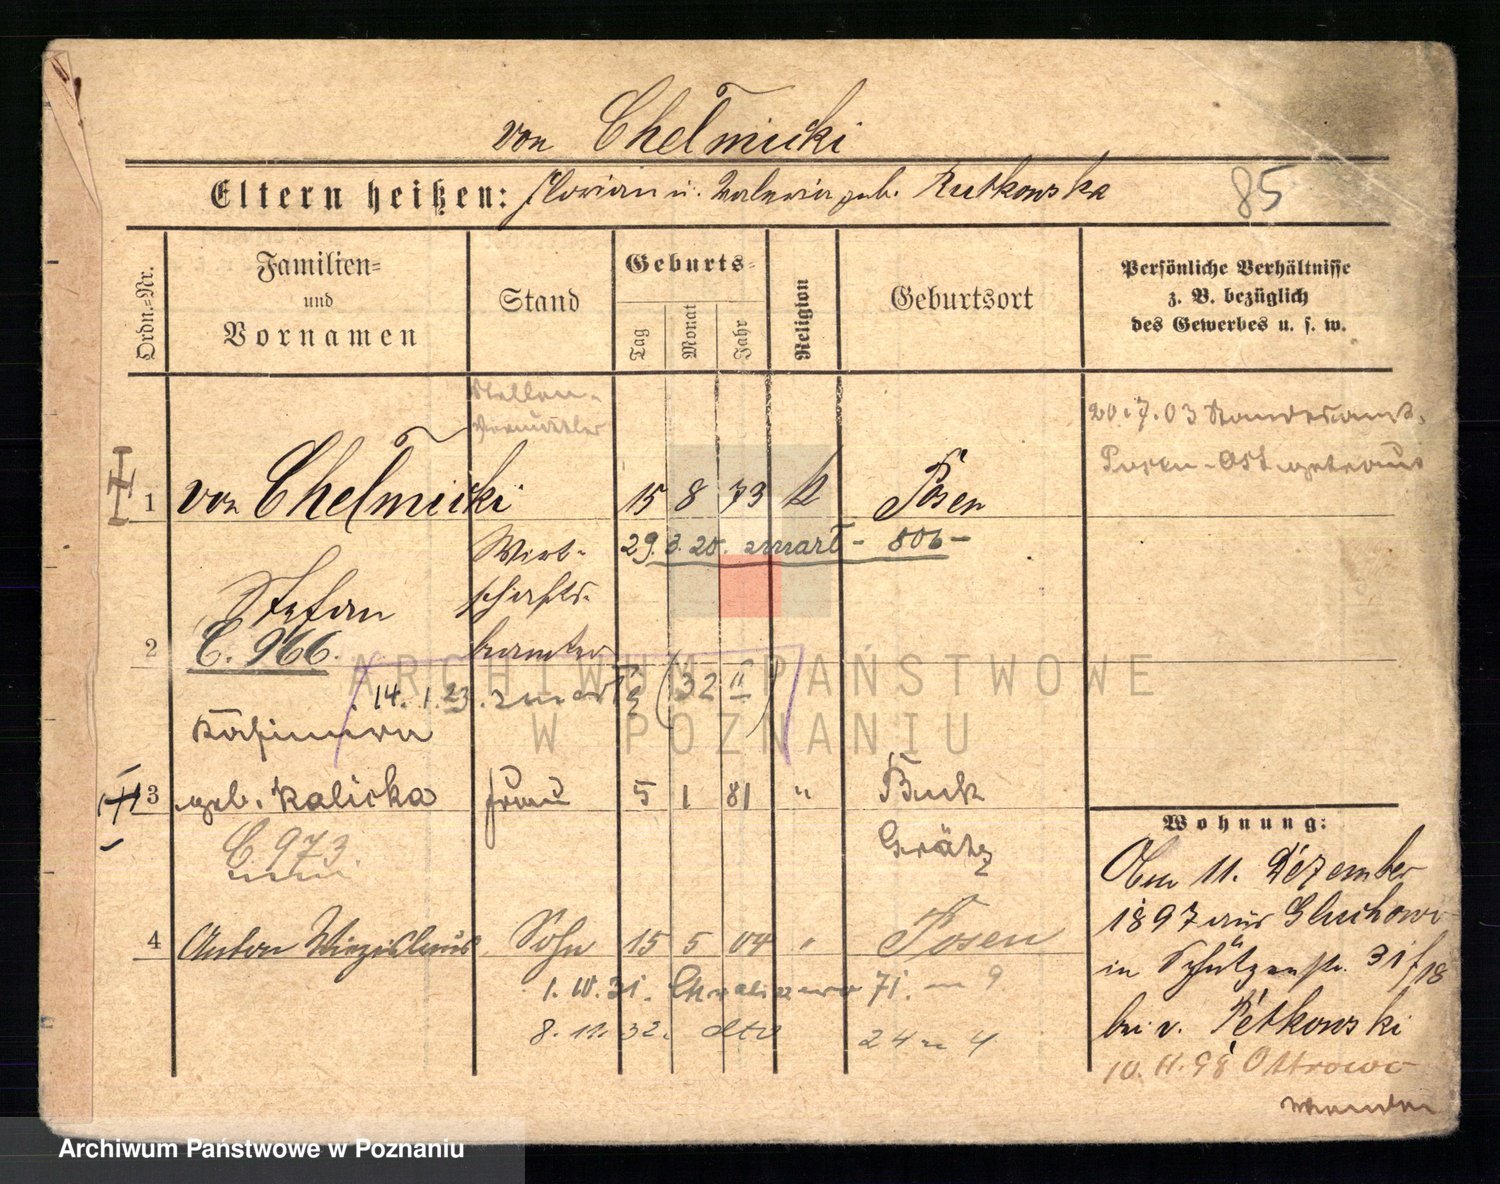 von Chełmicki
Eltern heißen: Florian u. Valeria geb. Rutkowska
85
Ordn.-Nr.
Familien-
und
Vornamen
Stand
Geburts-
Tag
Monat
Jahr
Religion
Geburtsort
Persönliche Verhältnisse
z. B. bezüglich
des Gewerbes u. s. w.
Stellen-
Vermittler
20.7.03 Standesamt
Posen-Ost getraut
1 von Chełmicki 15 8 73 k Posen
Wirt- 29. 3. 20. zmarł - 806 -
Stefan schafts-
2 C. 966. beamter
14. 1. 23. zmarł (32 II)
Kasimira
3 geb. Kalicka Frau 5 1 81 " Buk
C. 973. Grätz
4 Anton Wizislaus Sohn 15 5 04 " Posen
1. 10. 31. 71. m 9
8. 11. 32. dto 24 m 4
Wohnung:
Den 11. Dezember
1897 aus Gluchowo
in Schützenstr. 31 f 18
bei v. Petkowski
10. 11. 98 Ottrowo
wenden
ARCHIWUM PAŃSTWOWE
W POZNANIU
Archiwum Państwowe w Poznaniu